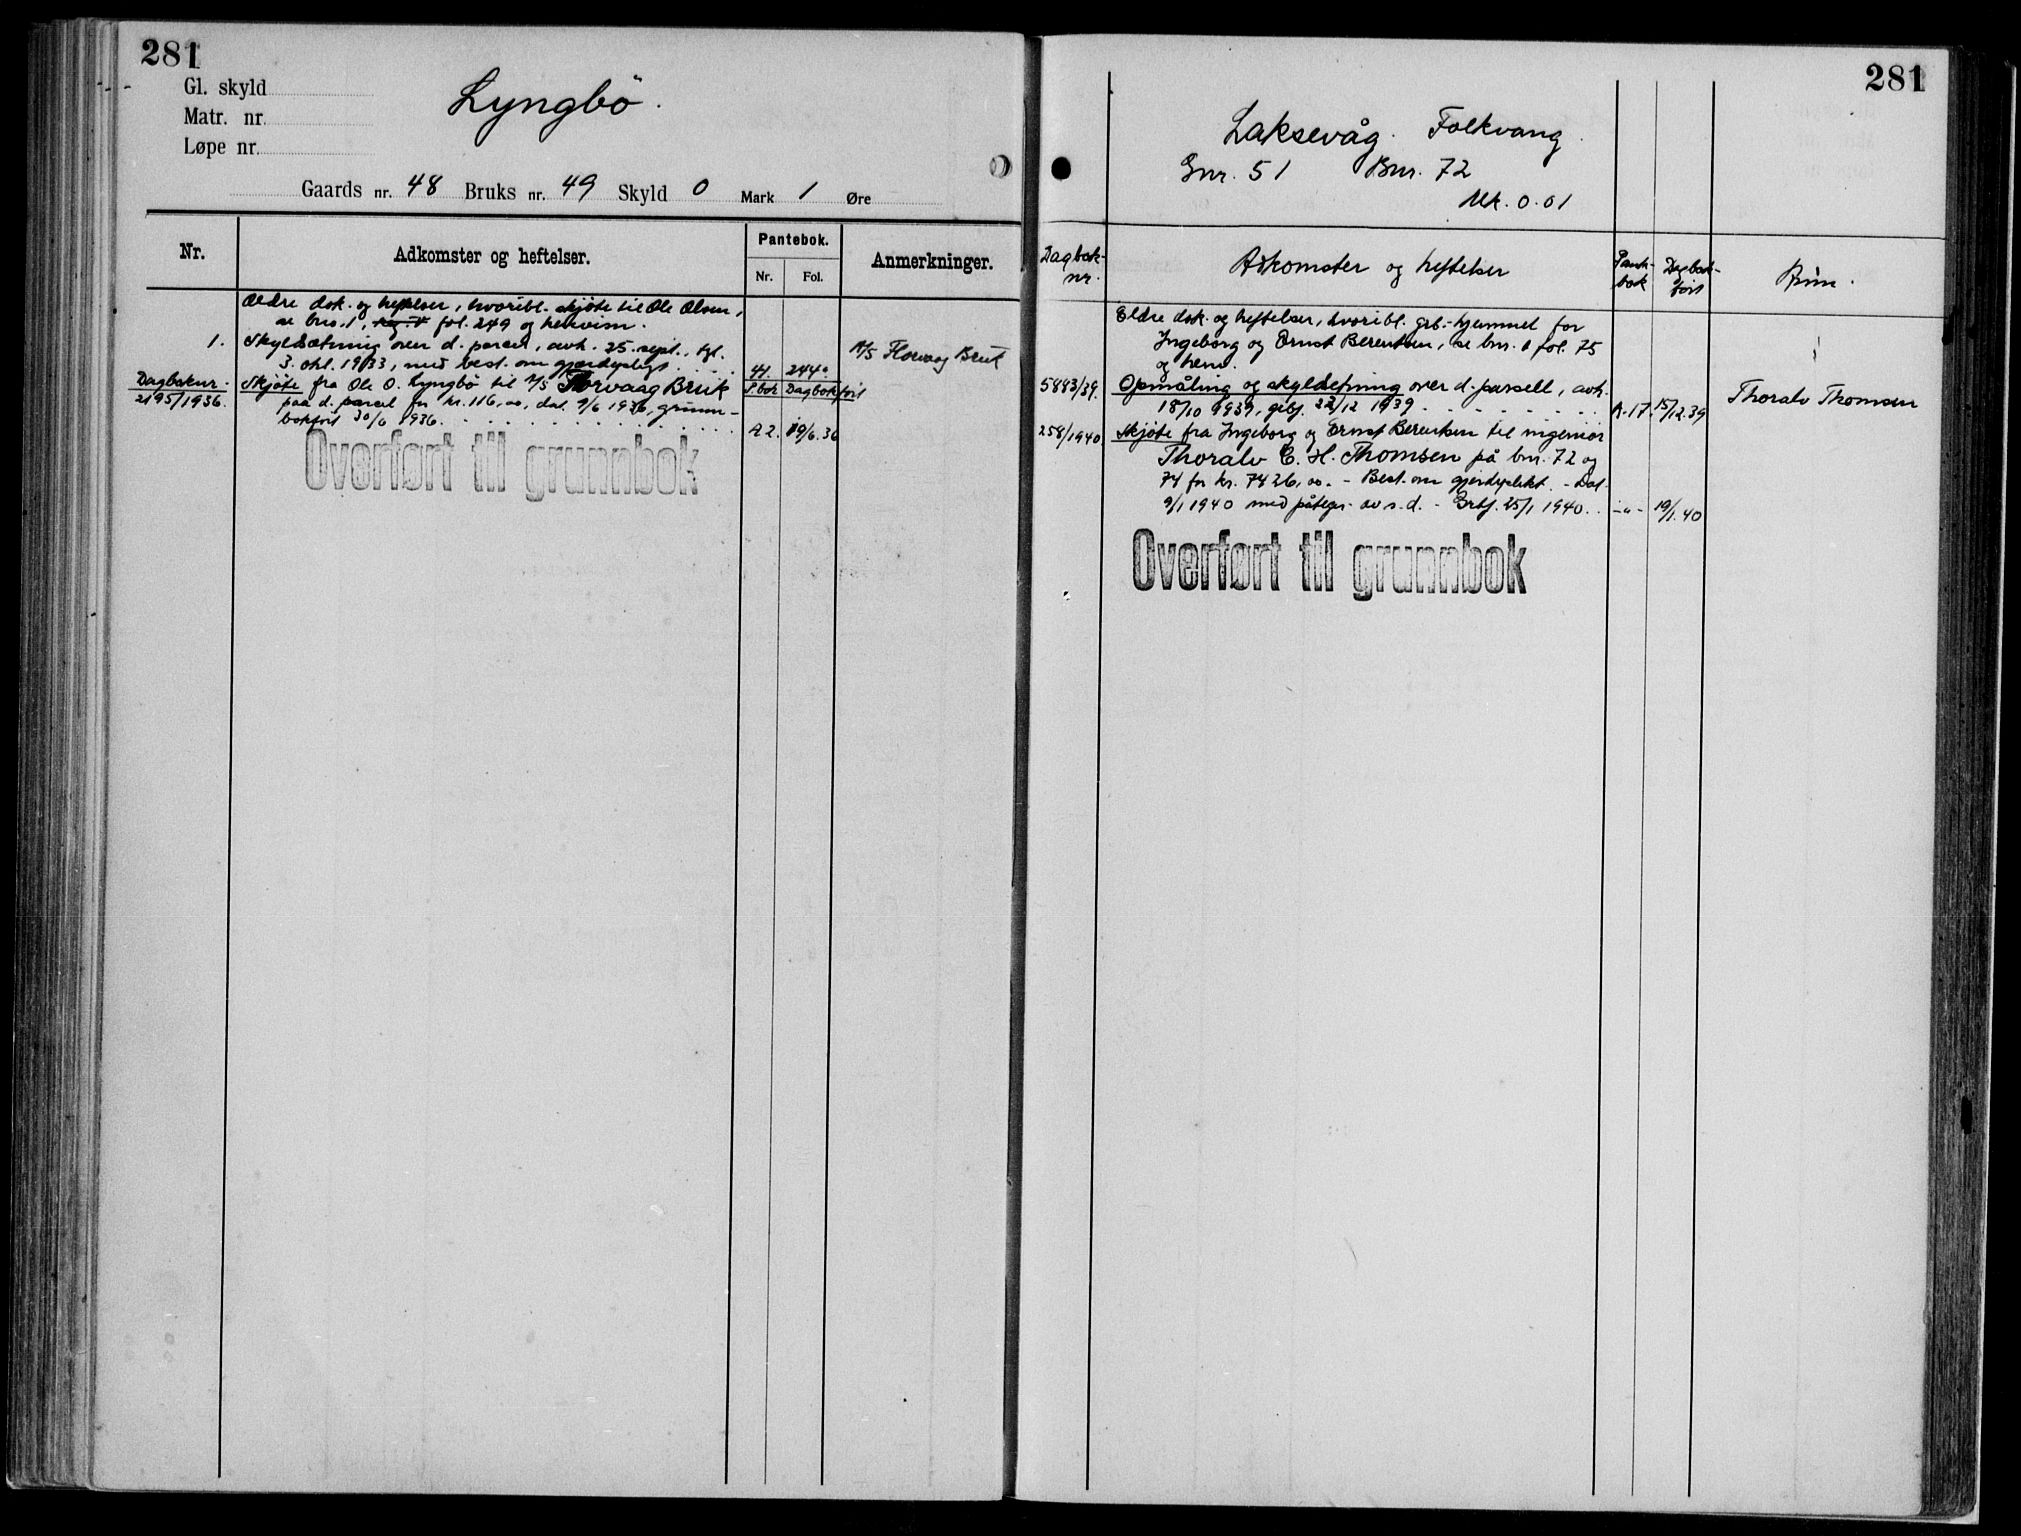 281
Gl. skyld
Matr. nr.
Løpe nr.
Lyngbö.
Gaards nr. 48 Bruks nr. 49 Skyld 0 Mark 1 Øre
Nr.
Adkomster og heftelser.
Pantebok.
Nr.
Fol.
Anmerkninger.
Ældre dok. og heftelser, hvoribl. skjøte til Ole Olsen,
se bnr. 1, fol. 249 og henvisn.
1. Skyldsætning over d. parcel, avh. 25. sept., tgl.
3. okt. 1933, med best. om gjerdepligt. 41. 244
A/S Florvaag Bruk
Dagboknr.
2195/1936.
Skjøte fra Ole O. Lyngbö til A/S Florvaag Bruk P.bok Dagbokført
paa d. parcel for kr. 116,00, dat. 9/6 1936, grunn-
bokført 30/6 1936. A 2. 19/6.36
Overført til grunnbok
281
Laksevåg. Folkvang.
Gnr. 51 Bnr. 72
Mk. 0.01
Dagbok-
nr.
Adkomster og heftelser
Pant-
bok
Dagbok-
ført
Anm.
Eldre dok. og heftelser, hvoribl. grb.-hjemmel for
Ingeborg og Ernst Berentsen, se bnr. 1 fol. 75
og henv.
5883/39. Opmåling og skyldetning over d. parsell, avh.
18/10 1939, grbf. 22/12 1939 A.17. 15/12.39
Thoralv Thomsen
258/1940 Skjøte fra Ingeborg og Ernst Berentsen til ingeniør
Thoralv C. H. Thomsen på bnr. 72 og
74 for kr. 7426,00. - Best. om gjerdeplikt. - Dat.
9/1 1940 med påtegn. av s.d. - Grbf. 25/1 1940. -"- 19/1.40
Overført til grunnbok